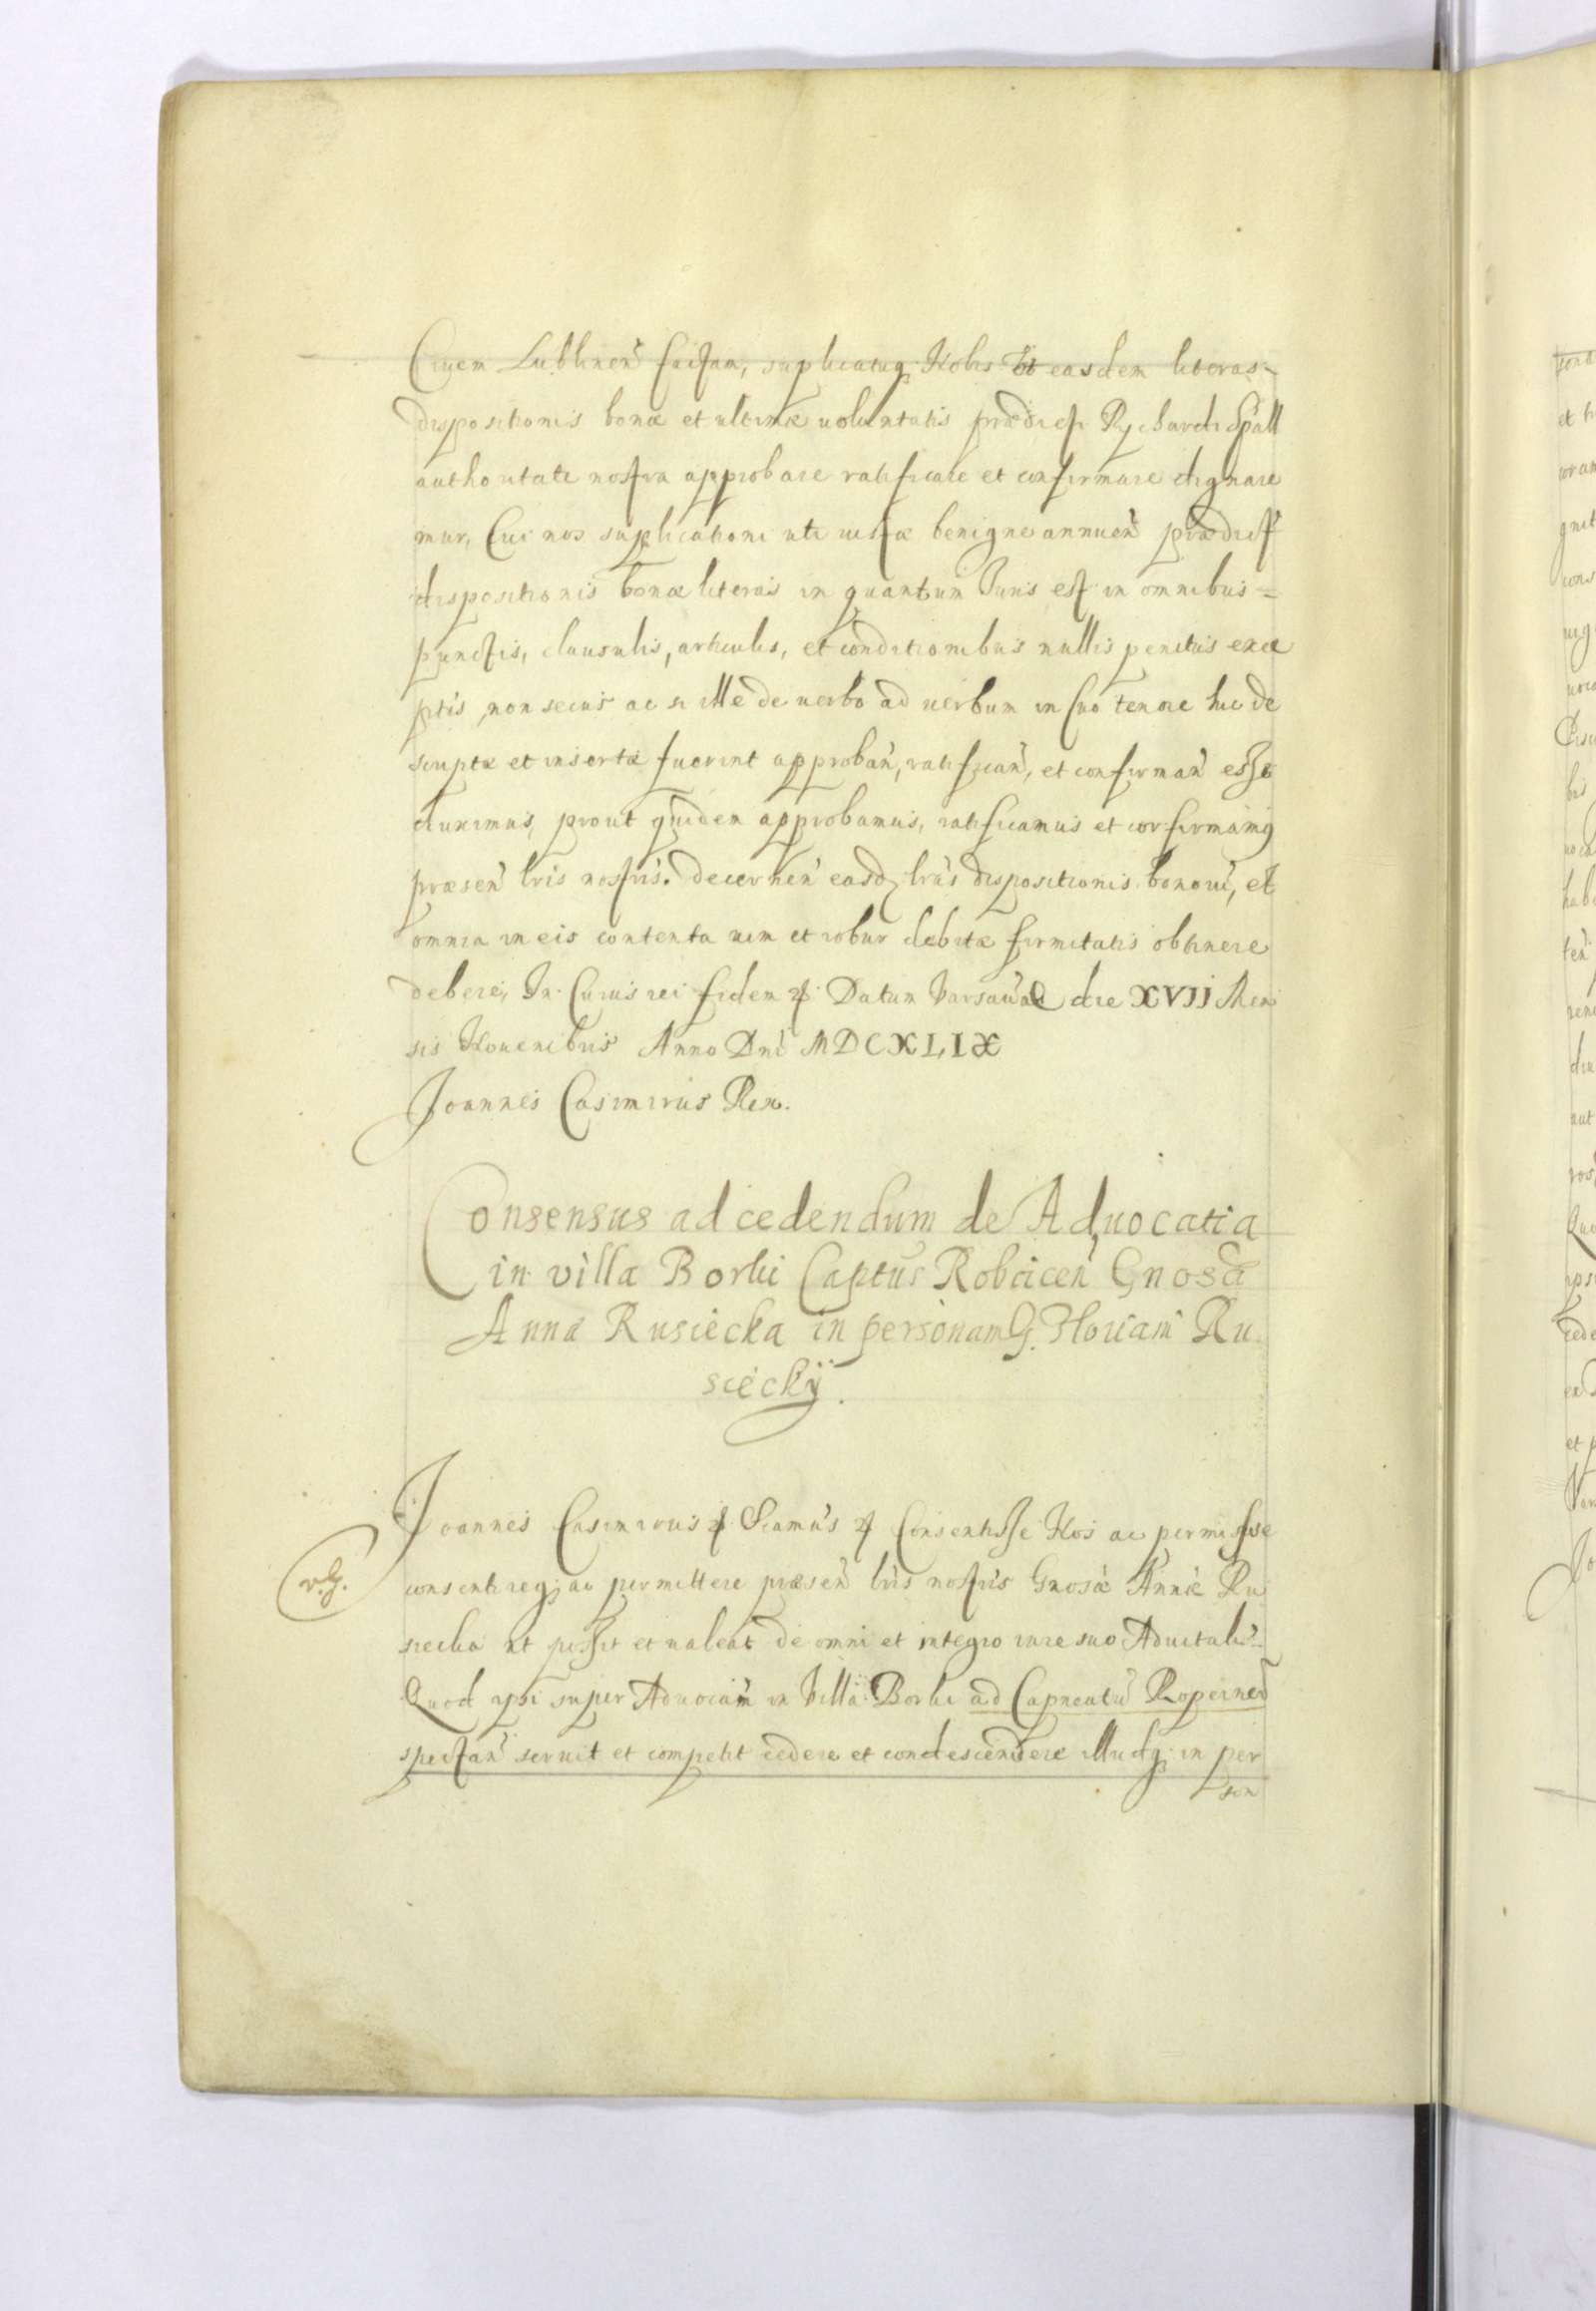 Ciuem Lublinen̄ factam, suplicatuq; Nobis Ut easdem literas
dispositionis bonæ et ultimæ uoluntatis prædicti Rychardi Spall
authoritate nostra approbare ratificare et confirmare dignare
mur, Cui nos suplicationi uti iustæ benigne annuen̄ prædict
dispositionis bonæ literas in quantum Juris est in omnibus =
punctis, clausulis, articulis, et conditionibus nullis penitus exce
ptis, non secus ac si illæ de uerbo ad uerbum in suo tenore huc de
scriptæ et insertæ fuerint approban̄, ratifican̄, et confirman̄ esse
duximus, prout quidem approbamus, ratificamus et confirmamq
præsen̄ lris nostris. decernen̄ easdq; lras dispositionis bonoru, et
omnia in eis contenta uim et robur debitæ firmitatis obtinere
debere, In Cuius rei fidem &. Datum Varsauiae die XVII Men
sis Nouembris Anno Dni MDCXLIX
Joannes Casimirus Rex.
Consensus ad cedendum de Aduocatia
in villa Borki Captus Robcicen̄ Gnosa
Anna Rusiecka in personam G. Floriani Ru
siecky.
Joannes Casimirus & Siamus & Consentisse Nos ac permisisse
v.G.
consentireq; ac permittere præsen̄ lris nostris Gnosæ Annæ Ru
siecka ut possit et ualeat de omni et integro iure suo Aduitali
Quod ipsi super Aduociam in Villa Borki ad Capneatu Ropcinen̄
spectan̄ seruit et competit cedere et condescendere illudq; in per
son